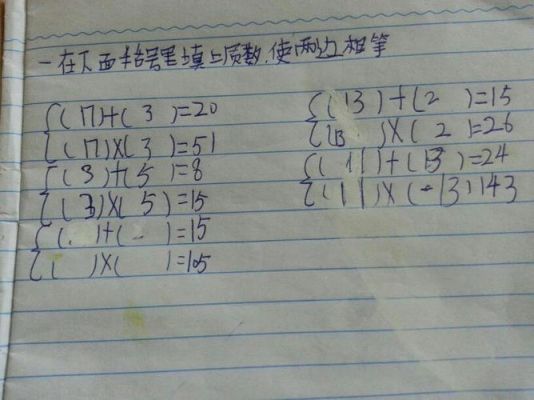 一在下面括号里填上质数,使两边相等
{(17)+(3)=20
{(17)×(3)=51
{(3)+(5)=8
{(3)×(5)=15
{( )+( )=15
{( )×( )=105
{(13)+(2)=15
{(13)×(2)=26
{(11)+(13)=24
{(11)×(13)143